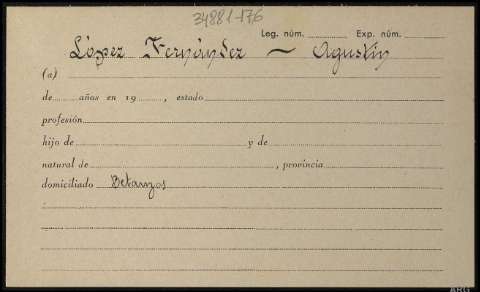 34881-176
Leg. núm. Exp. núm.
López Fernández — Agustín
(a)
de años en 19 , estado
profesión
hijo de y de
natural de , provincia
domiciliado Betanzos
ARG